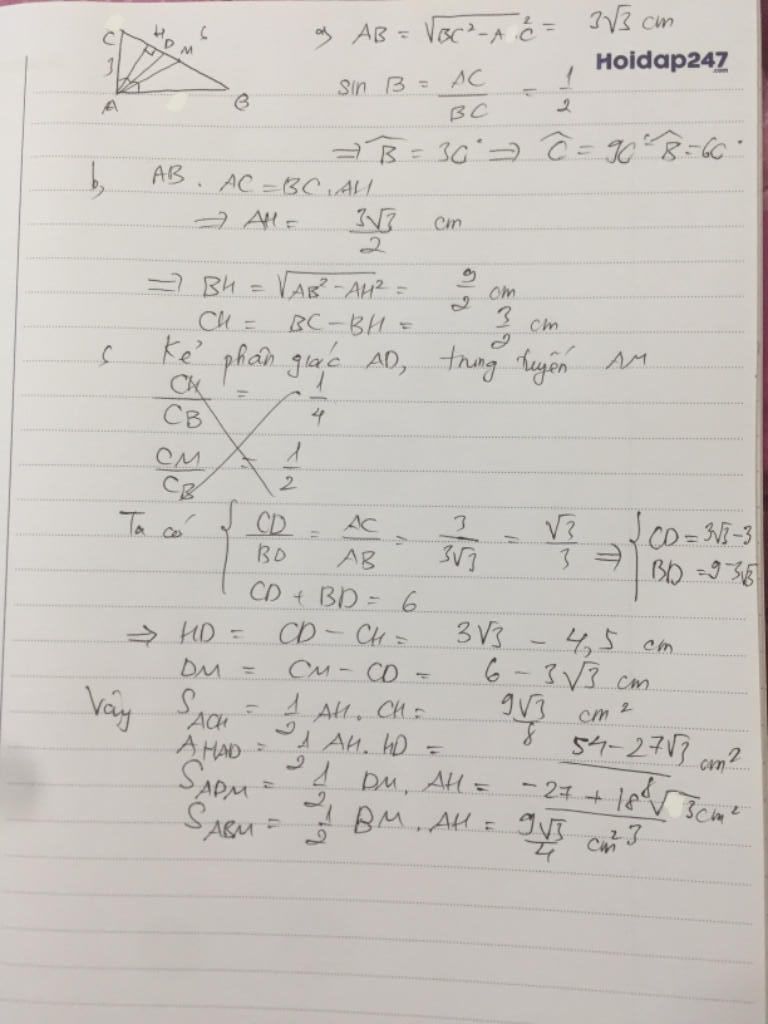 C H D M 6
3
A B
a, AB = √BC² - AC² = 3√3 cm
Hoidap247.com
sin B = AC/BC = 1/2
⇒ B̂ = 30° ⇒ Ĉ = 90° - B̂ = 60°
b, AB . AC = BC . AH
⇒ AH = 3√3/2 cm
⇒ BH = √AB² - AH² = 9/2 cm
CH = BC - BH = 3/2 cm
c, Kẻ phân giác AD, trung tuyến AM
CH/CB = 1/4
CM/CB = 1/2
Ta có { CD/BD = AC/AB = 3/3√3 = √3/3 ⇒ { CD = 3√3 - 3
CD + BD = 6 BD = 9 - 3√3
⇒ HD = CD - CH = 3√3 - 4,5 cm
DM = CM - CD = 6 - 3√3 cm
Vậy S_ACH = 1/2 AH . CH = 9√3/8 cm²
A_HAD = 1/2 AH . HD = 54 - 27√3/8 cm²
S_ADM = 1/2 DM . AH = -27 + 18√3/3 cm²
S_ABM = 1/2 BM . AH = 9√3/4 cm²